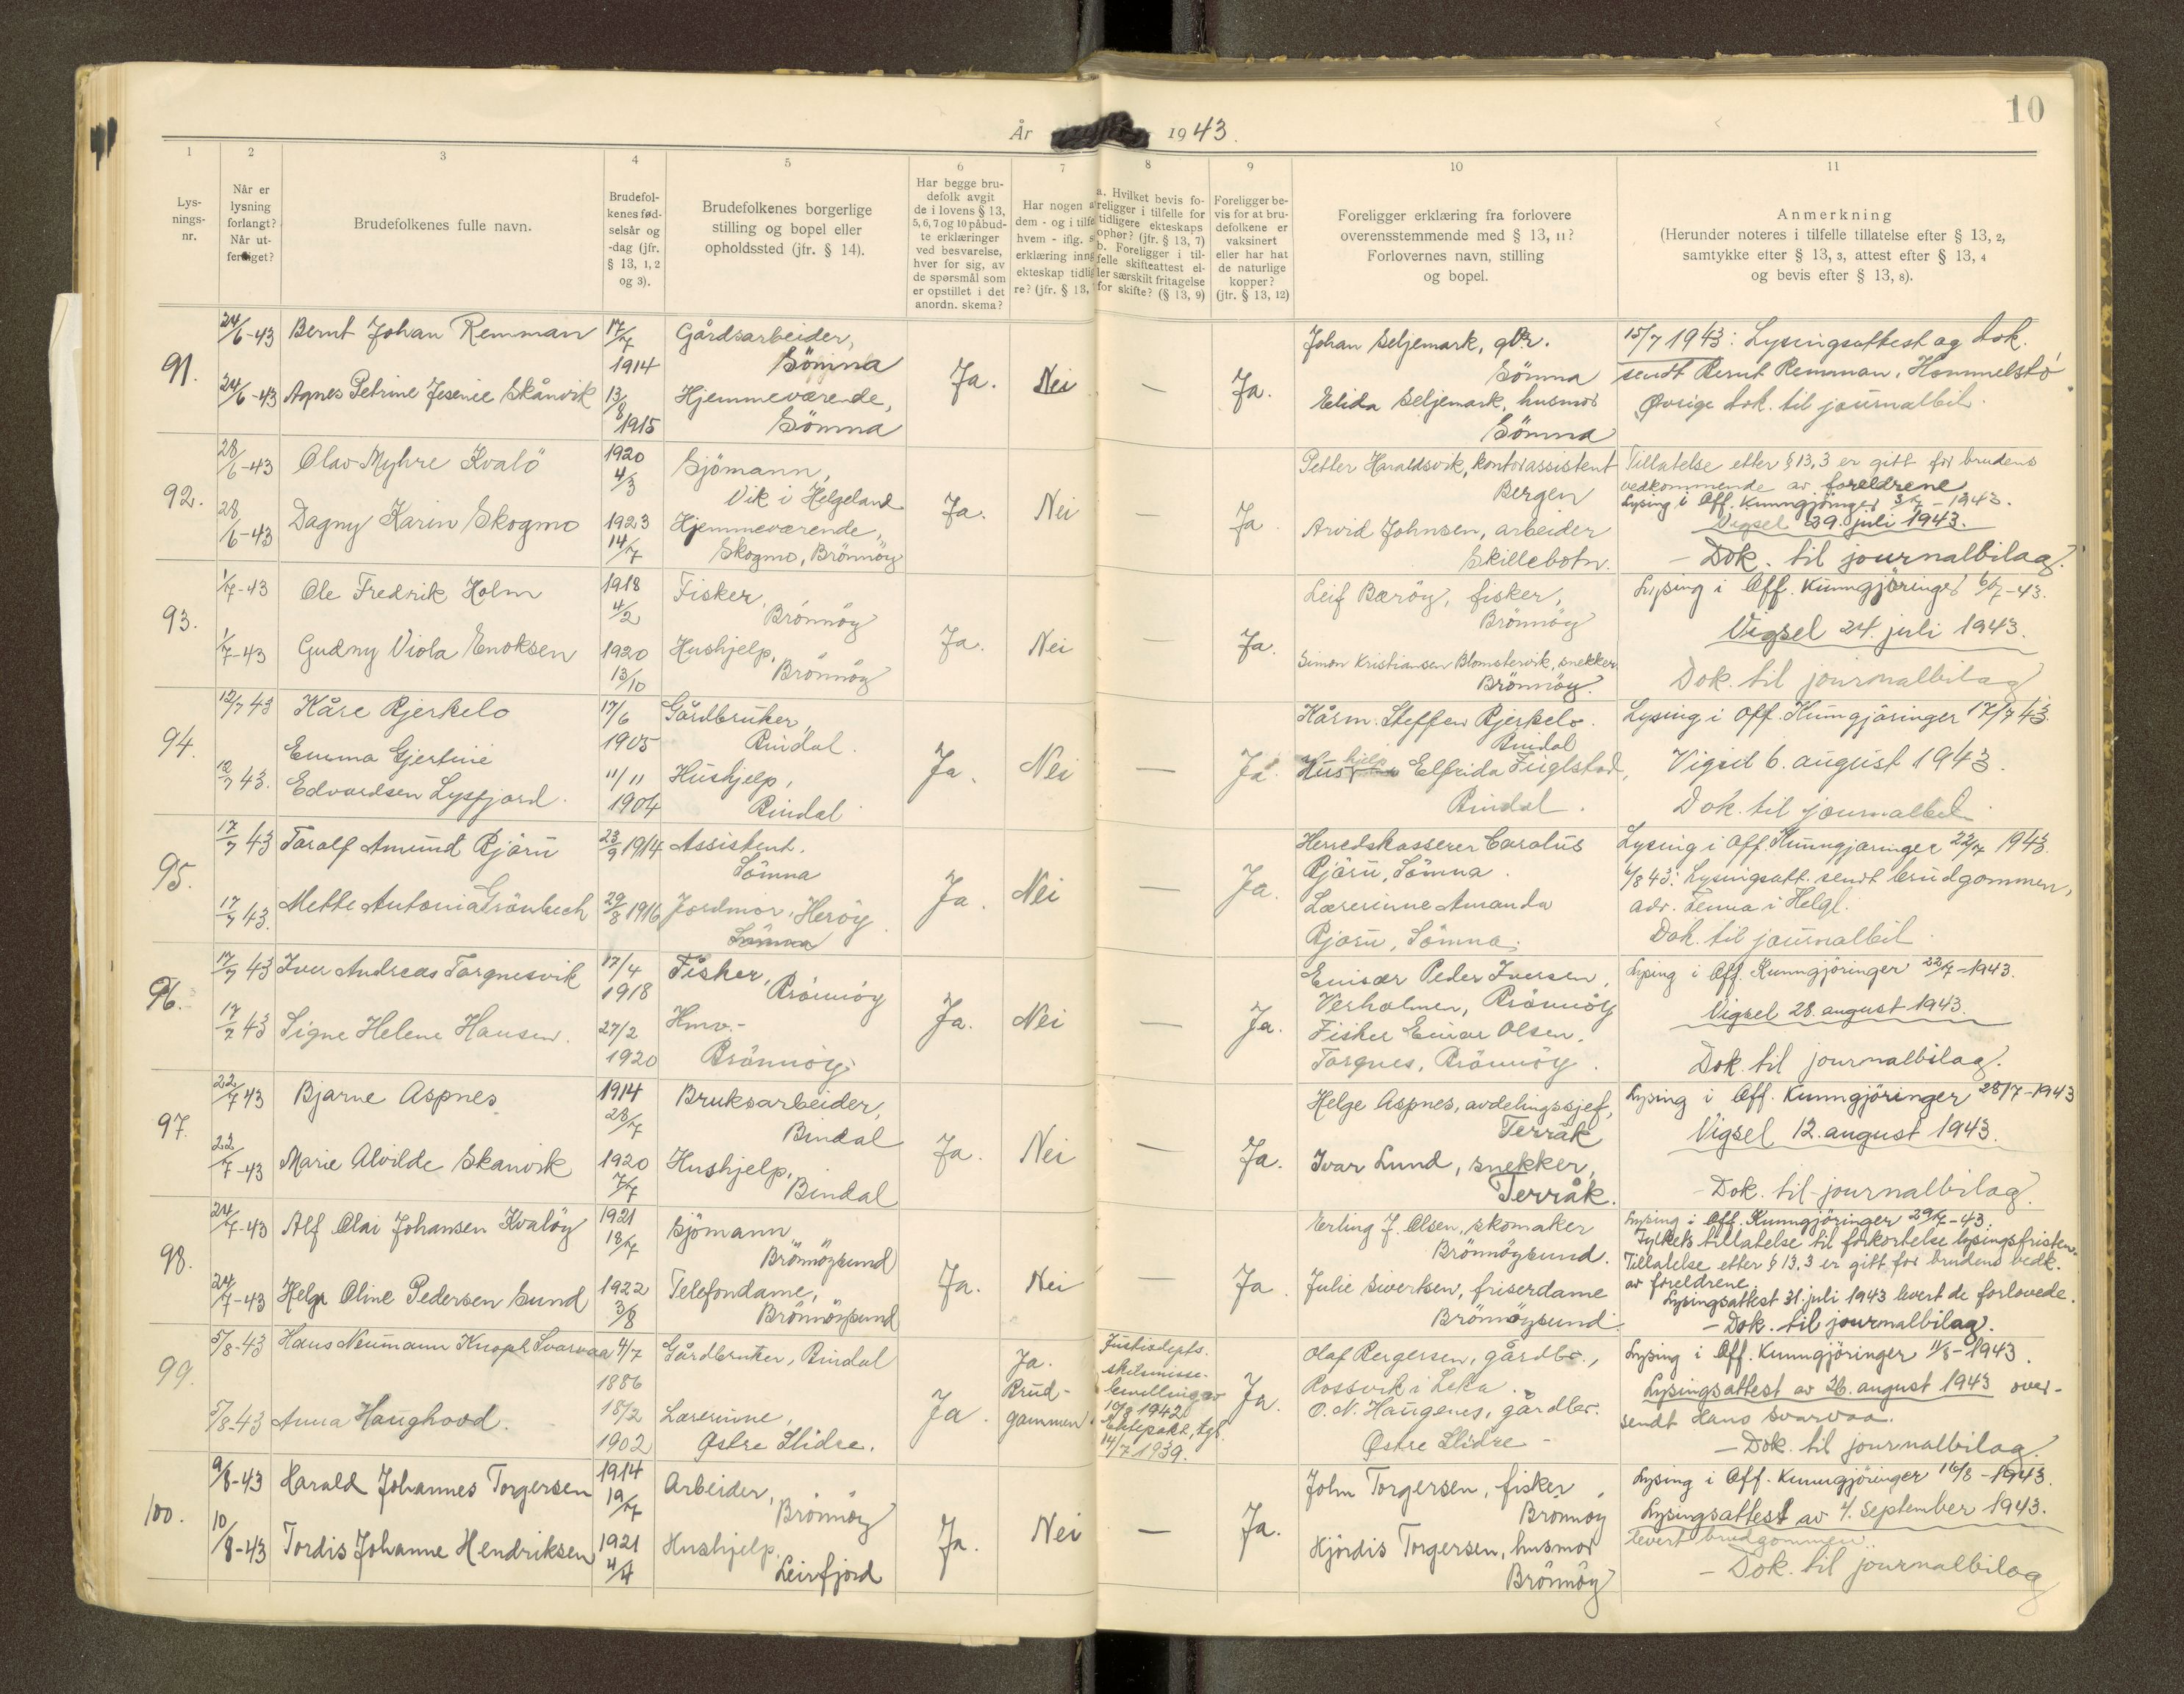 10
År 1943.
1 2 3 4 5 6 7 8 9 10 11
Lys-
nings-
nr.
Når er
lysning
forlangt?
Når ut-
ferdiget?
Brudefolkenes fulle navn.
Brudefol-
kenes fød-
selsår og
-dag (jfr.
§ 13, 1, 2
og 3).
Brudefolkenes borgerlige
stilling og bopel eller
opholdssted (jfr. § 14).
Har begge bru-
defolk avgit
de i lovens § 13,
5, 6, 7 og 10 påbud-
te erklæringer
ved besvarelse,
hver for sig, av
de spørsmål som
er opstillet i det
anordn. skema?
Har nogen a
dem - og i tilfe
hvem - iflg. s
erklæring inng
ekteskap tidlig
re? (jfr. § 13,
a. Hvilket bevis fo-
religger i tilfelle for
tidligere ekteskaps
ophør? (jfr. § 13, 7)
b. Foreligger i til-
felle skifteattest el-
ler særskilt fritagelse
for skifte? (§ 13, 9)
Foreligger be-
vis for at bru-
defolkene er
vaksinert
eller har hat
de naturlige
kopper?
(jfr. § 13, 12)
Foreligger erklæring fra forlovere
overensstemmende med § 13, 11?
Forlovernes navn, stilling
og bopel.
Anmerkning
(Herunder noteres i tilfelle tillatelse efter § 13, 2,
samtykke efter § 13, 3, attest efter § 13, 4
og bevis efter § 13, 8).
91.
24/6-43 Bernt Johan Remman 17/7 1914 Gårdsarbeider,
Sömna
24/6-43 Agnes Petrine Jesenie Skånvik 13/8 1915 Hjemmeværende,
Sömna
Ja. Nei — Ja.
Johan Seljemark, gbr.
Sömna
Elida Seljemark, husmor
Sömna
15/7 1943: Lysingsattest og dok.
sendt Bernt Remman, Hommelstö
Øvrige dok. til journalbil.
92.
28/6-43 Olav Myhre Kvalö 1920 4/3 Sjömann,
Vik i Helgeland
28/6-43 Dagny Karin Skogmo 1923 14/7 Hjemmeværende,
Skogmo, Brönnöy
Ja. Nei — Ja
Petter Haraldsvik, kontorassistent
Bergen
Arvid Johnsen, arbeider
Skillebotn.
Tillatelse etter § 13,3 er gitt for brudens
vedkommende av foreldrene
Lysing i Off. Kunngjöringer 3/7-1943.
Vigsel 39. juli 1943.
- Dok. til journalbilag.
93.
1/7-43 Ole Fredrik Holm 1918 4/2 Fisker,
Brönnöy
1/7-43 Gudny Viola Enoksen 1920 13/10 Hushjelp,
Brönnöy
Ja. Nei — Ja.
Leif Bæröy, fisker,
Brönnöy
Simon Kristiansen Blomstervik, snekker
Brönnöy.
Lysing i Off. Kunngjöringer 6/7-43.
Vigsel 24. juli 1943.
Dok. til journalbilag
94.
12/7 43 Kåre Bjerkelo 17/6 1905 Gårdbruker,
Bindal.
12/7 43. Emma Gjertine
Edvardsen Lysfjord. 11/11 1904 Hushjelp,
Bindal
Ja. Nei — Ja.
Kårm. Steffen Bjerkelo.
Bindal
Hushjelp Elfrida Fuglstad,
Bindal.
Lysing i Off. Kunngjöringer 17/7 43.
Vigsel 6. august 1943.
Dok. til journalbil.
95.
17/7 43 Toralf Amund Björu 23/9 1914 Assistent.
Sömna
17/7 43. Mette Antonia Grönbech 29/8 1916 Jordmor, Heröy.
Sömna
Ja. Nei — Ja.
Herredskasserer Carolus
Björu, Sömna.
Lærerinne Amanda
Björu, Sömna.
Lysing i Off. Kunngjöringer 22/7 1943.
6/8 43: Lysingsatt. sendt brudgommen,
adr. Tenna i Helgl.
Dok. til journalbil.
96.
17/7 43 Iver Andreas Torgnesvik 17/4 1918 Fisker,
Brönnöy
17/7 43 Signe Helene Hansen. 27/2 1920 Hmv.-
Brönnöy
Ja. Nei — Ja.
Emisær Peder Iversen,
Verholmen, Brönnöy
Fisker Einar Olsen.
Torgnes, Brönnöy.
Lysing i Off. Kunngjöringer 22/7-1943.
Vigsel 28. august 1943.
Dok. til journalbilag.
97.
22/7 43 Bjarne Aspnes 1914 28/7 Bruksarbeider,
Bindal
22/7-43 Marie Alvilde Skanvik 1920 7/7 Hushjelp,
Bindal
Ja. Nei — Ja.
Helge Aspnes, avdelingssjef,
Terråk
Ivar Lund, snekker,
Terråk.
Lysing i Off. Kunngjöringer 28/7-1943
Vigsel 12. august 1943.
- Dok. til journalbilag.
98.
24/7-43 Alf Olai Johansen Kvalöy 1921 18/7 Sjömann,
Brönnöysund
24/7-43 Helga Oline Pedersen Sund 1922 3/8 Telefondame,
Brönnöysund
Ja. Nei — Ja
Erling J. Olsen, skomaker
Brönnöysund.
Julie Sivertsen, friserdame
Brönnöysund.
Lysing i Off. Kunngjöringer 29/7-43.
Fylkets tillatelse til forkortelse lysingsfristen.
Tillatelse etter § 13.3 er gitt for brudens vedk.
av foreldrene.
Lysingsattest 31. juli 1943 levert de forlovede.
- Dok. til journalbilag.
99.
5/8-43 Hans Neumann Knoph Svarvaa 4/7 1886 Gårdbruker, Bindal
5/8-43 Anna Haughovd. 18/2 1902 Lærerinne,
Østre Slidre.
Ja. Ja.
Brud-
gommen.
Justisdepts.
skilsmisse-
bevilling av
10/9 1942.
Ektepakt, tgl.
14/7 1939.
Ja.
Olaf Bergersen, gårdbr.,
Rossvik i Leka.
O. N. Haugenes, gårdbr.
Østre Slidre -
Lysing i Off. Kunngjöringer 11/8-1943.
Lysingsattest av 26. august 1943 over-
sendt Hans Svarvaa.
- Dok. til journalbilag.
100.
9/8-43 Harald Johannes Torgersen 1914 19/7 Arbeider,
Brönnöy
10/8-43 Tordis Johanne Hendriksen 1921 4/4 Hushjelp,
Leirfjord
Ja. Nei — Ja.
John Torgersen, fisker,
Brönnöy
Hjördis Torgersen, husmor
Brönnöy
Lysing i Off. Kunngjöringer 16/8-1943.
Lysingsattest av 4. september 1943.
levert brudgommen.
- Dok. til journalbilag